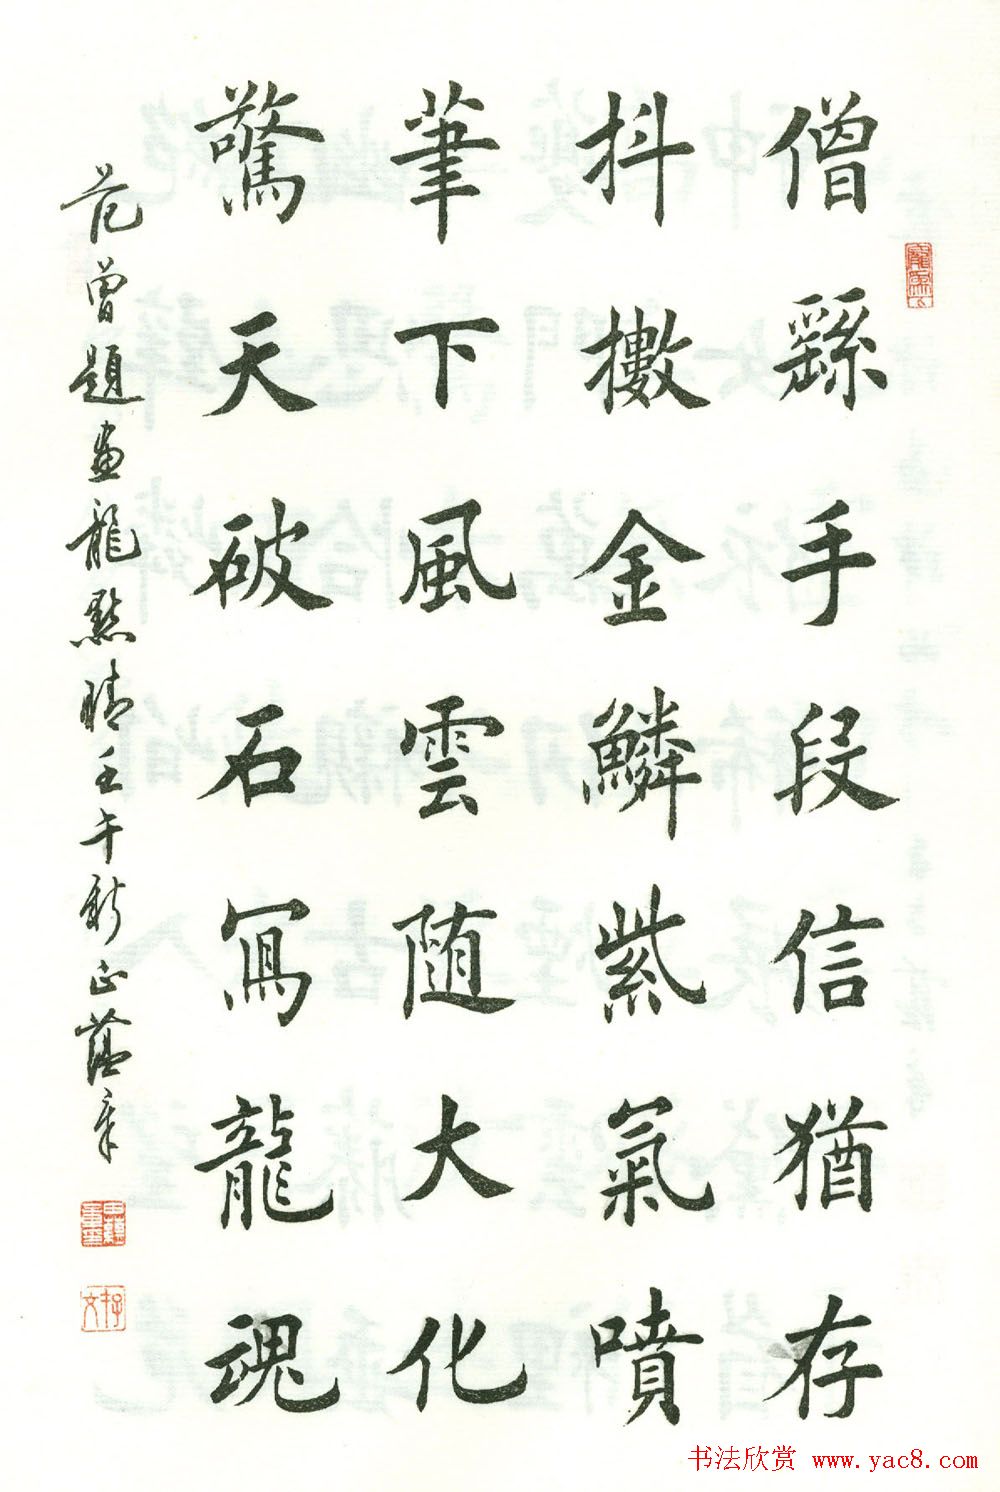 僧繇手段信猶存
抖擻金鱗紫氣噴
筆下風雲随大化
驚天破石寫龍魂
范曾題畫龍點睛壬午新正蘊章
书法欣赏 www.yac8.com